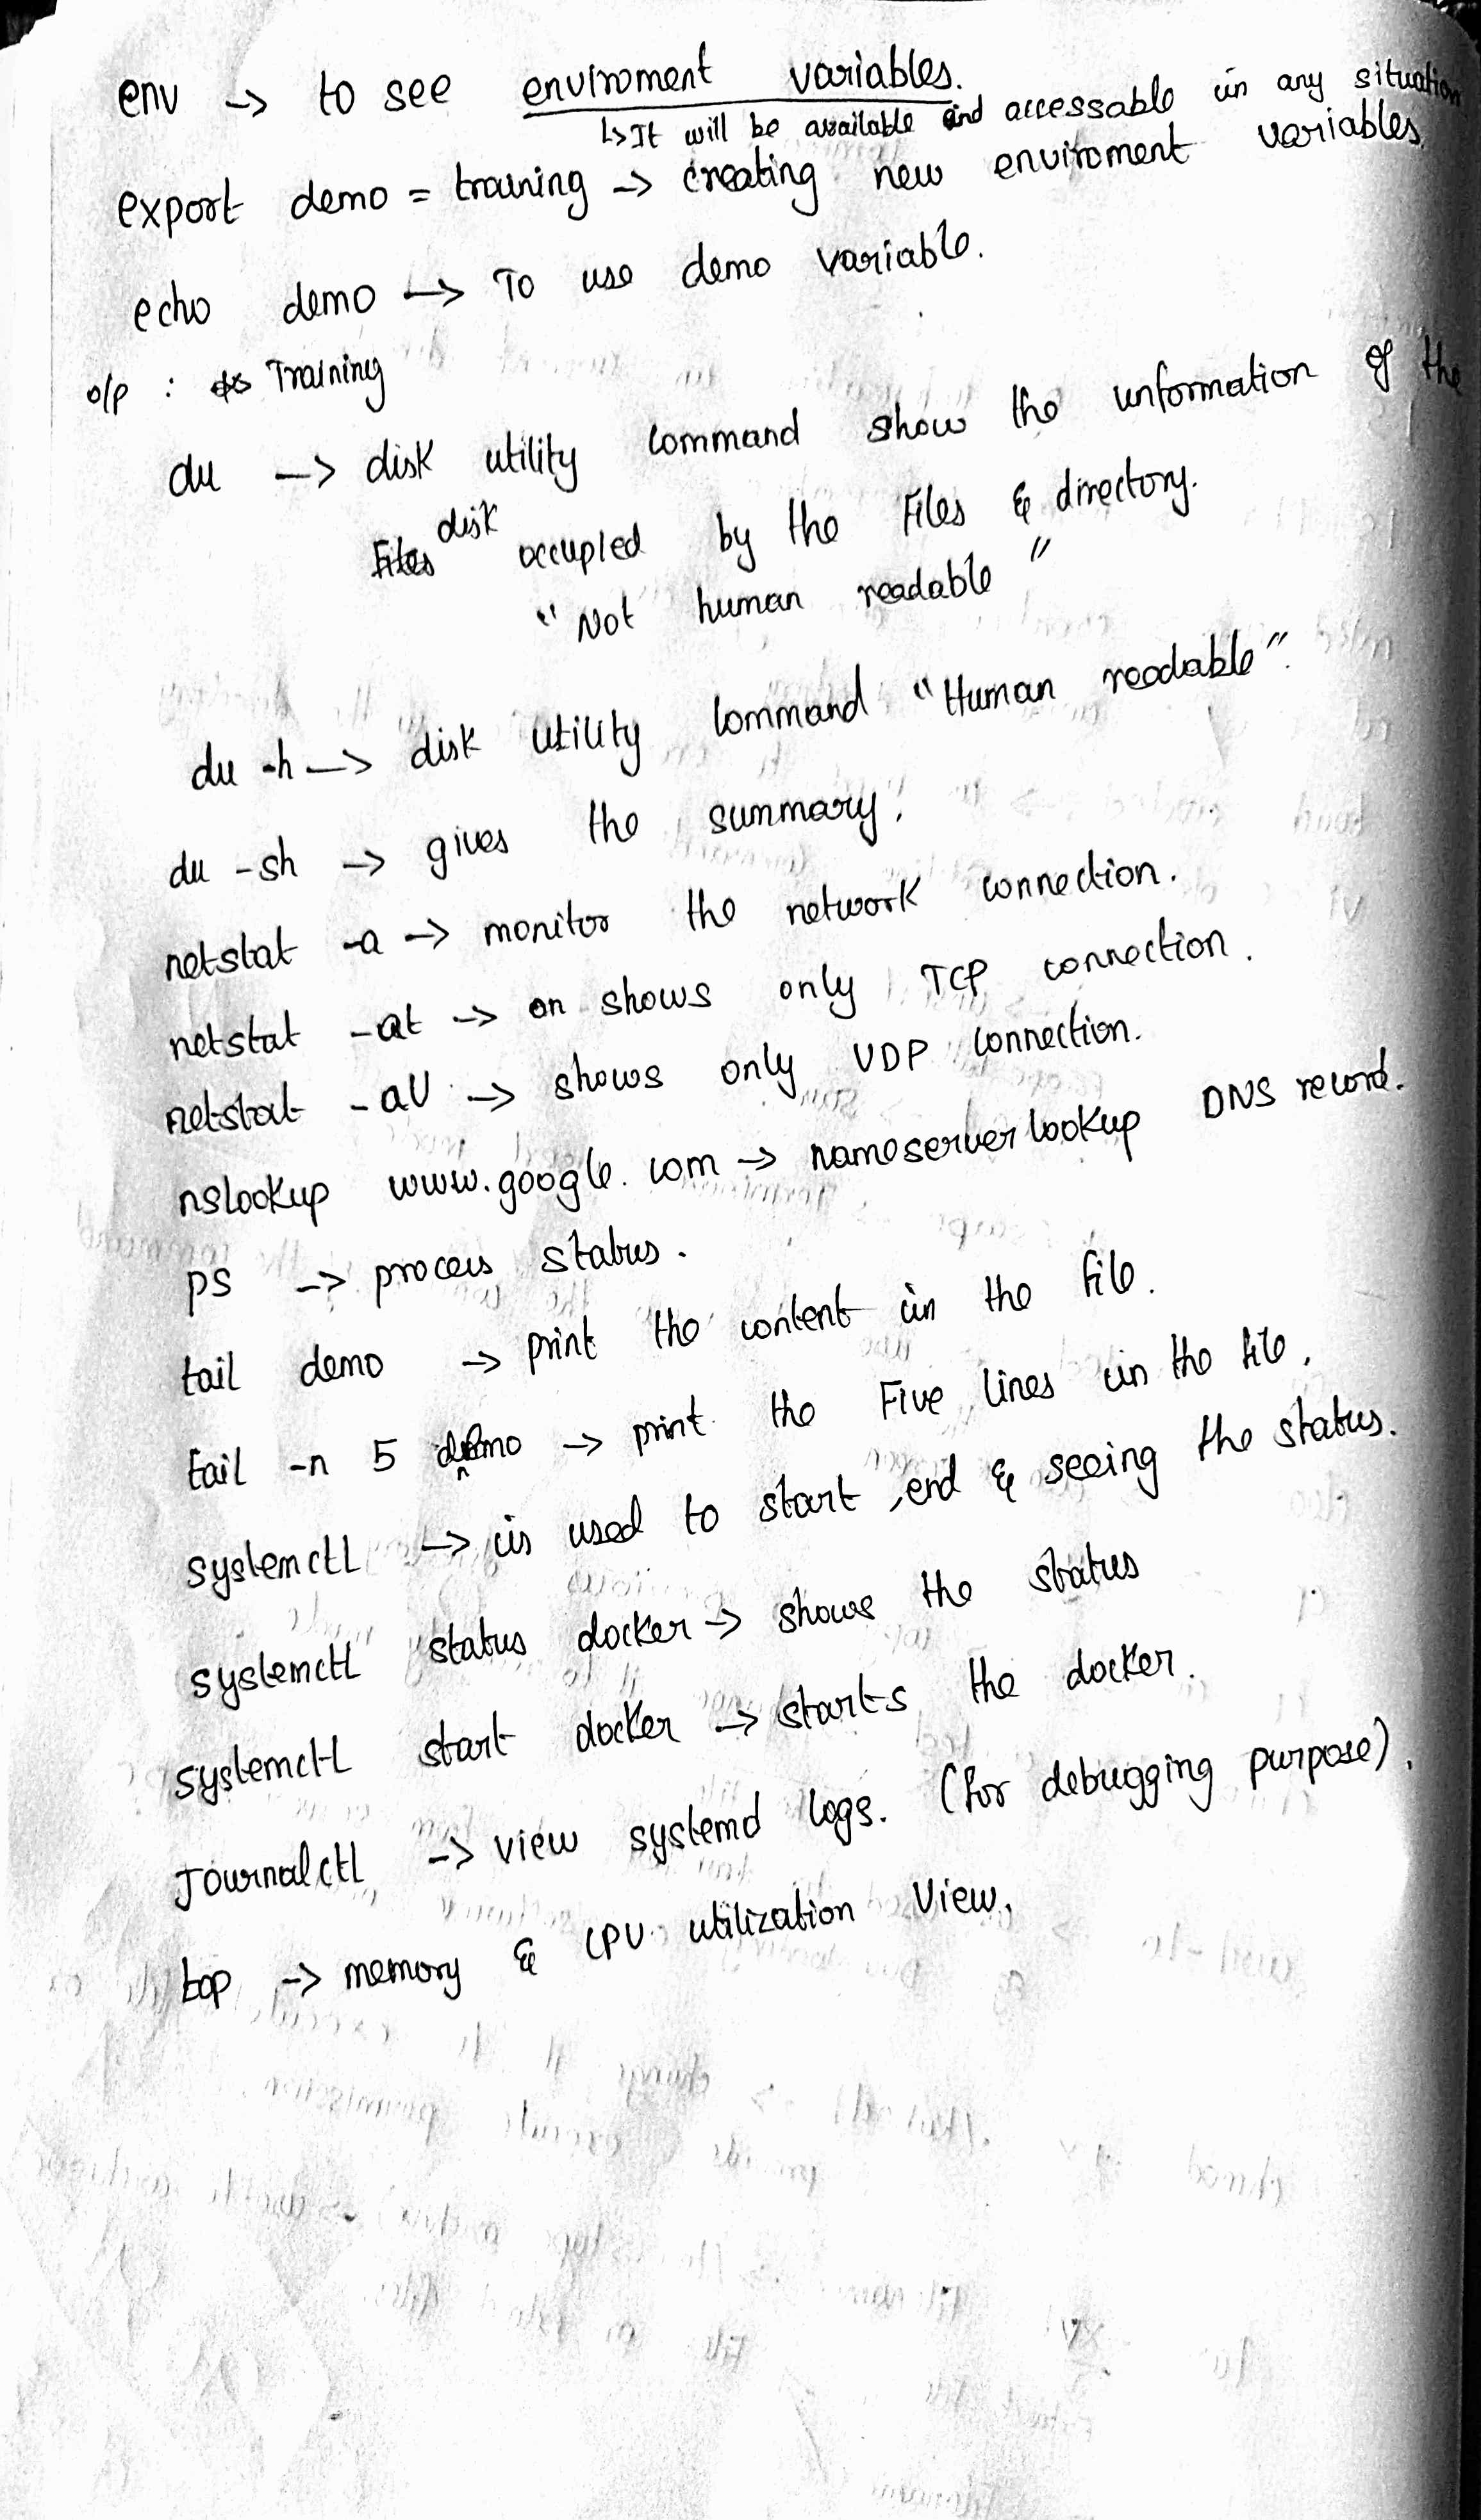 env -> to see enviroment variables.
↳ It will be available and accessable in any situation
export demo = training -> creating new enviroment variables.
echo demo -> To use demo variable.
o/p : Training
du -> disk utility command show the information of the
disk occupied by the Files & directory.
"Not human readable"
du -h -> disk utility command "Human readable".
du -sh -> gives the summary.
netstat -a -> monitor the network connection.
netstat -at -> on shows only TCP connection.
netstat -aU -> shows only UDP connection.
nslookup www.google.com -> nameserver lookup DNS record.
ps -> process status.
tail demo -> print the content in the file.
tail -n 5 demo -> print the Five lines in the file.
systemctl -> is used to start, end & seeing the status.
systemctl status docker -> shows the status
systemctl start docker -> starts the docker.
Journalctl -> view systemd logs. (for debugging purpose).
top -> memory & CPU utilization View.